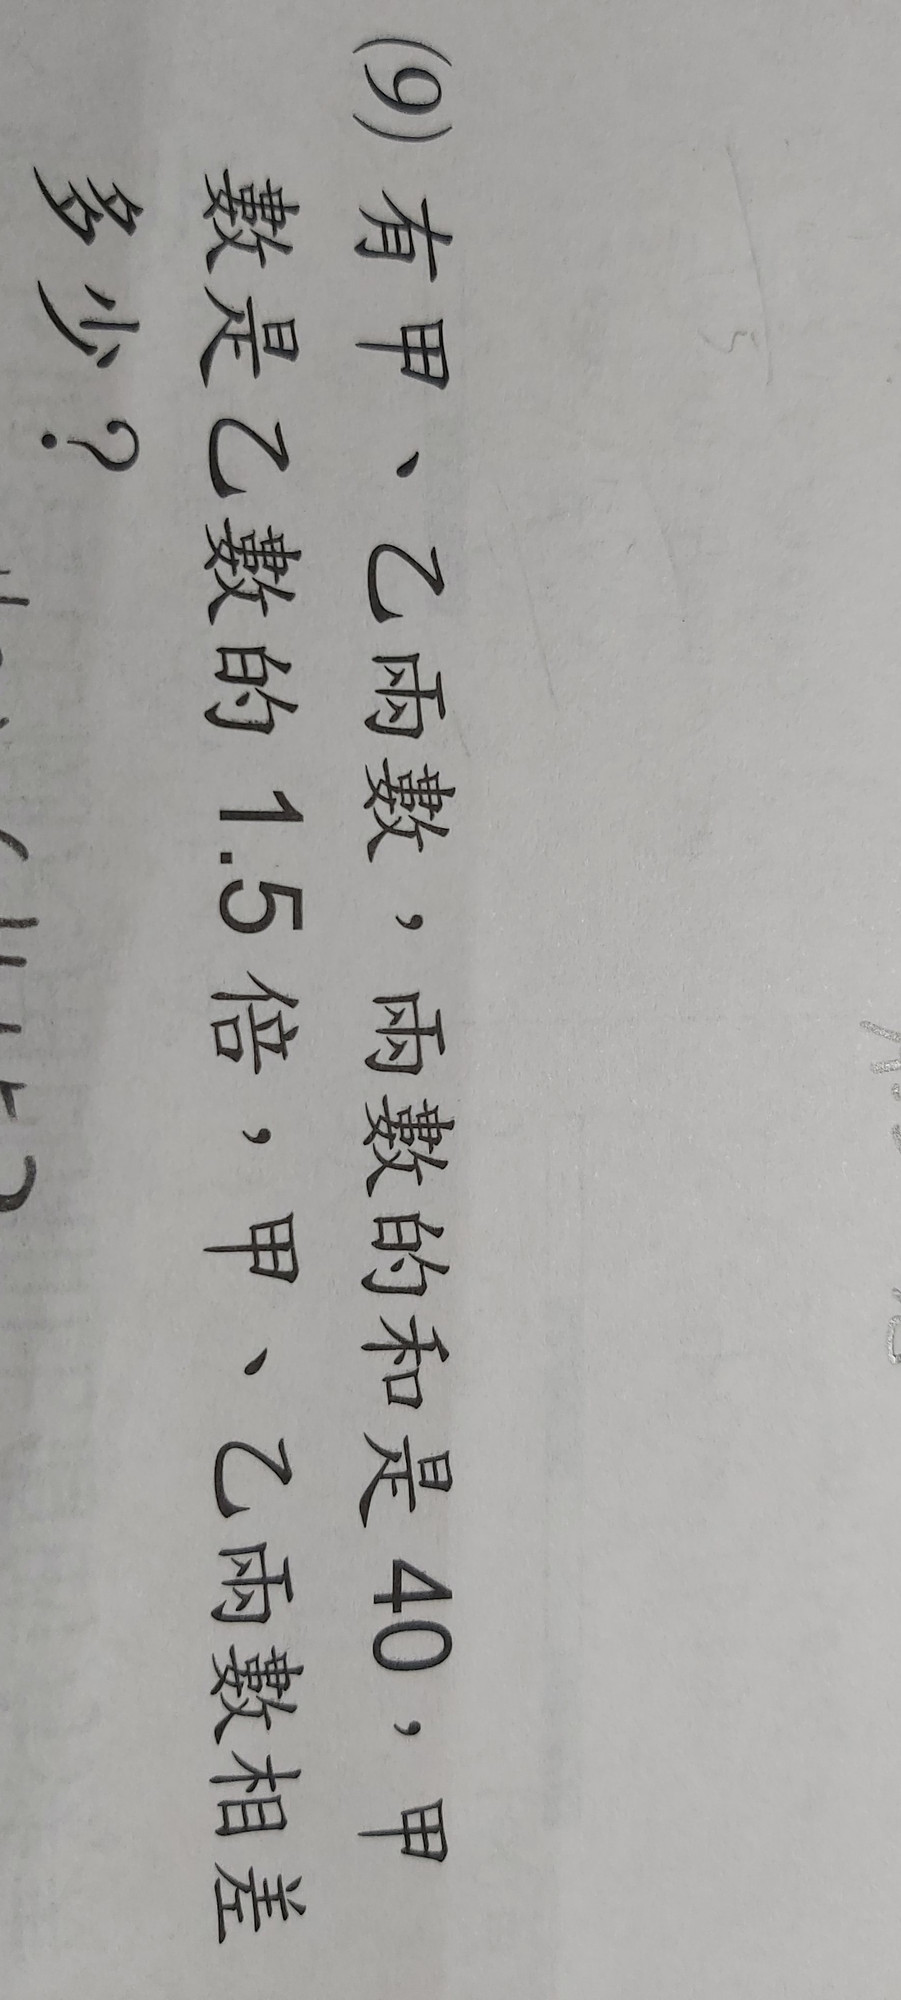 (9) 有甲、乙雨數,雨數的和是 40,甲
數是乙數的 1.5 倍,甲、乙雨數相差
多少?